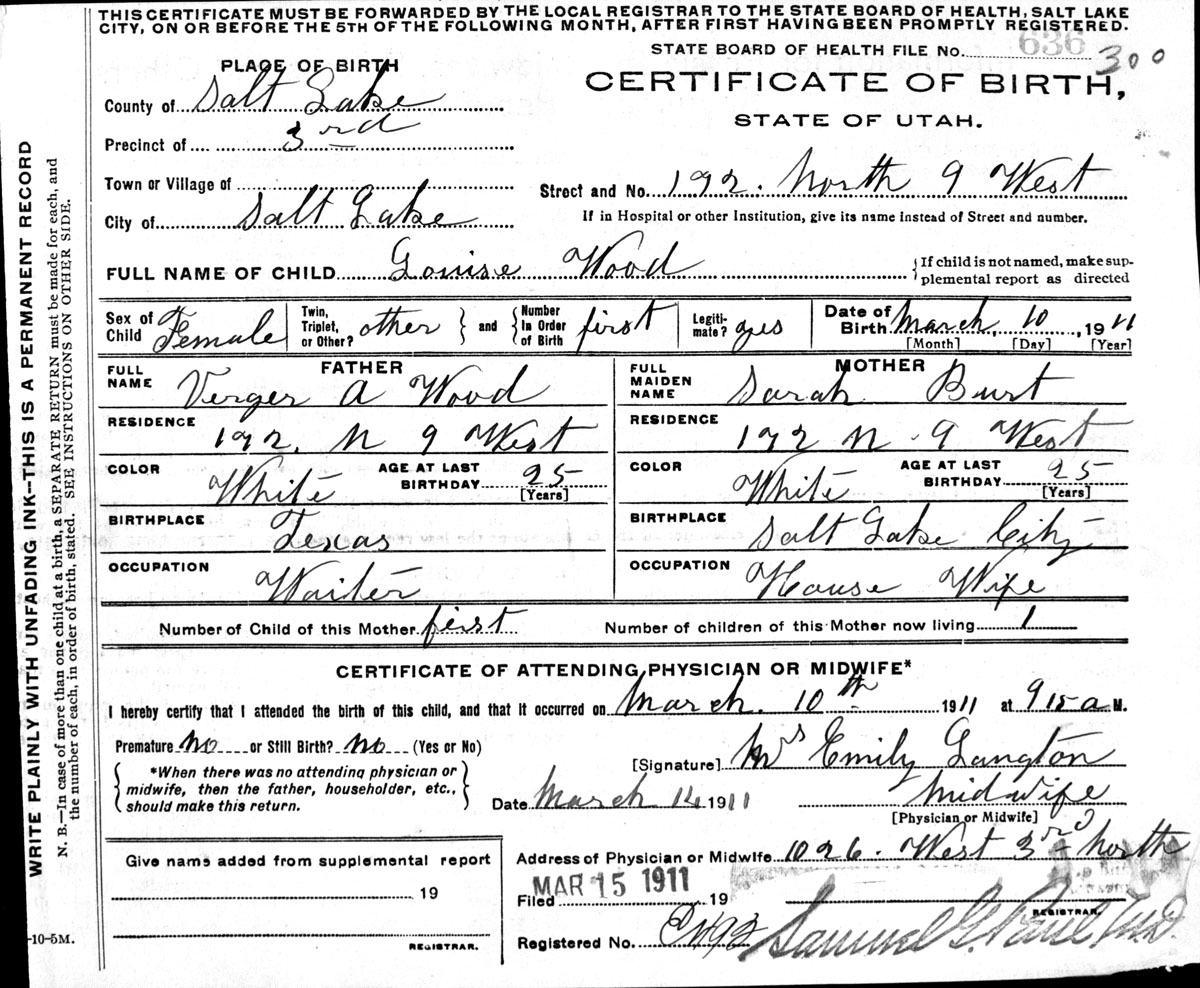 THIS CERTIFICATE MUST BE FORWARDED BY THE LOCAL REGISTRAR TO THE STATE BOARD OF HEALTH, SALT LAKE
CITY, ON OR BEFORE THE 5TH OF THE FOLLOWING MONTH, AFTER FIRST HAVING BEEN PROMPTLY REGISTERED.
STATE BOARD OF HEALTH FILE No. 636 300
PLACE OF BIRTH
CERTIFICATE OF BIRTH,
STATE OF UTAH.
County of Salt Lake
Precinct of 3rd
Town or Village of
Street and No. 192. North 9 West
City of Salt Lake
If in Hospital or other Institution, give its name instead of Street and number.
FULL NAME OF CHILD Louise Wood
{ If child is not named, make sup-
plemental report as directed
Sex of Child Female
Twin, Triplet, or Other? other } and { Number In Order of Birth first
Legiti-mate? yes
Date of Birth March 10, 1911
[Month] [Day] [Year]
FATHER
FULL NAME Verger A Wood
RESIDENCE 192. N 9 West
COLOR White AGE AT LAST BIRTHDAY 25 [Years]
BIRTHPLACE Texas
OCCUPATION Waiter
MOTHER
FULL MAIDEN NAME Sarah Burt
RESIDENCE 192 N. 9 West
COLOR White AGE AT LAST BIRTHDAY 25 [Years]
BIRTHPLACE Salt Lake City
OCCUPATION House Wife
Number of Child of this Mother first Number of children of this Mother now living 1
CERTIFICATE OF ATTENDING PHYSICIAN OR MIDWIFE*
I hereby certify that I attended the birth of this child, and that it occurred on March. 10th 1911 at 9 15 a M.
Premature no or Still Birth? no (Yes or No)
{ *When there was no attending physician or
midwife, then the father, householder, etc.,
should make this return. }
[Signature] Mrs Emily Langton
Date March 14 1911 Midwife
[Physician or Midwife]
Give name added from supplemental report
19
REGISTRAR.
Address of Physician or Midwife 1026. West 3rd North
Filed MAR 15 1911 19
REGISTRAR.
Registered No. Samuel G. Paul M.D.
WRITE PLAINLY WITH UNFADING INK—THIS IS A PERMANENT RECORD
N. B.—In case of more than one child at a birth, a SEPARATE RETURN must be made for each, and
the number of each, in order of birth, stated. SEE INSTRUCTIONS ON OTHER SIDE.
-10-5M.